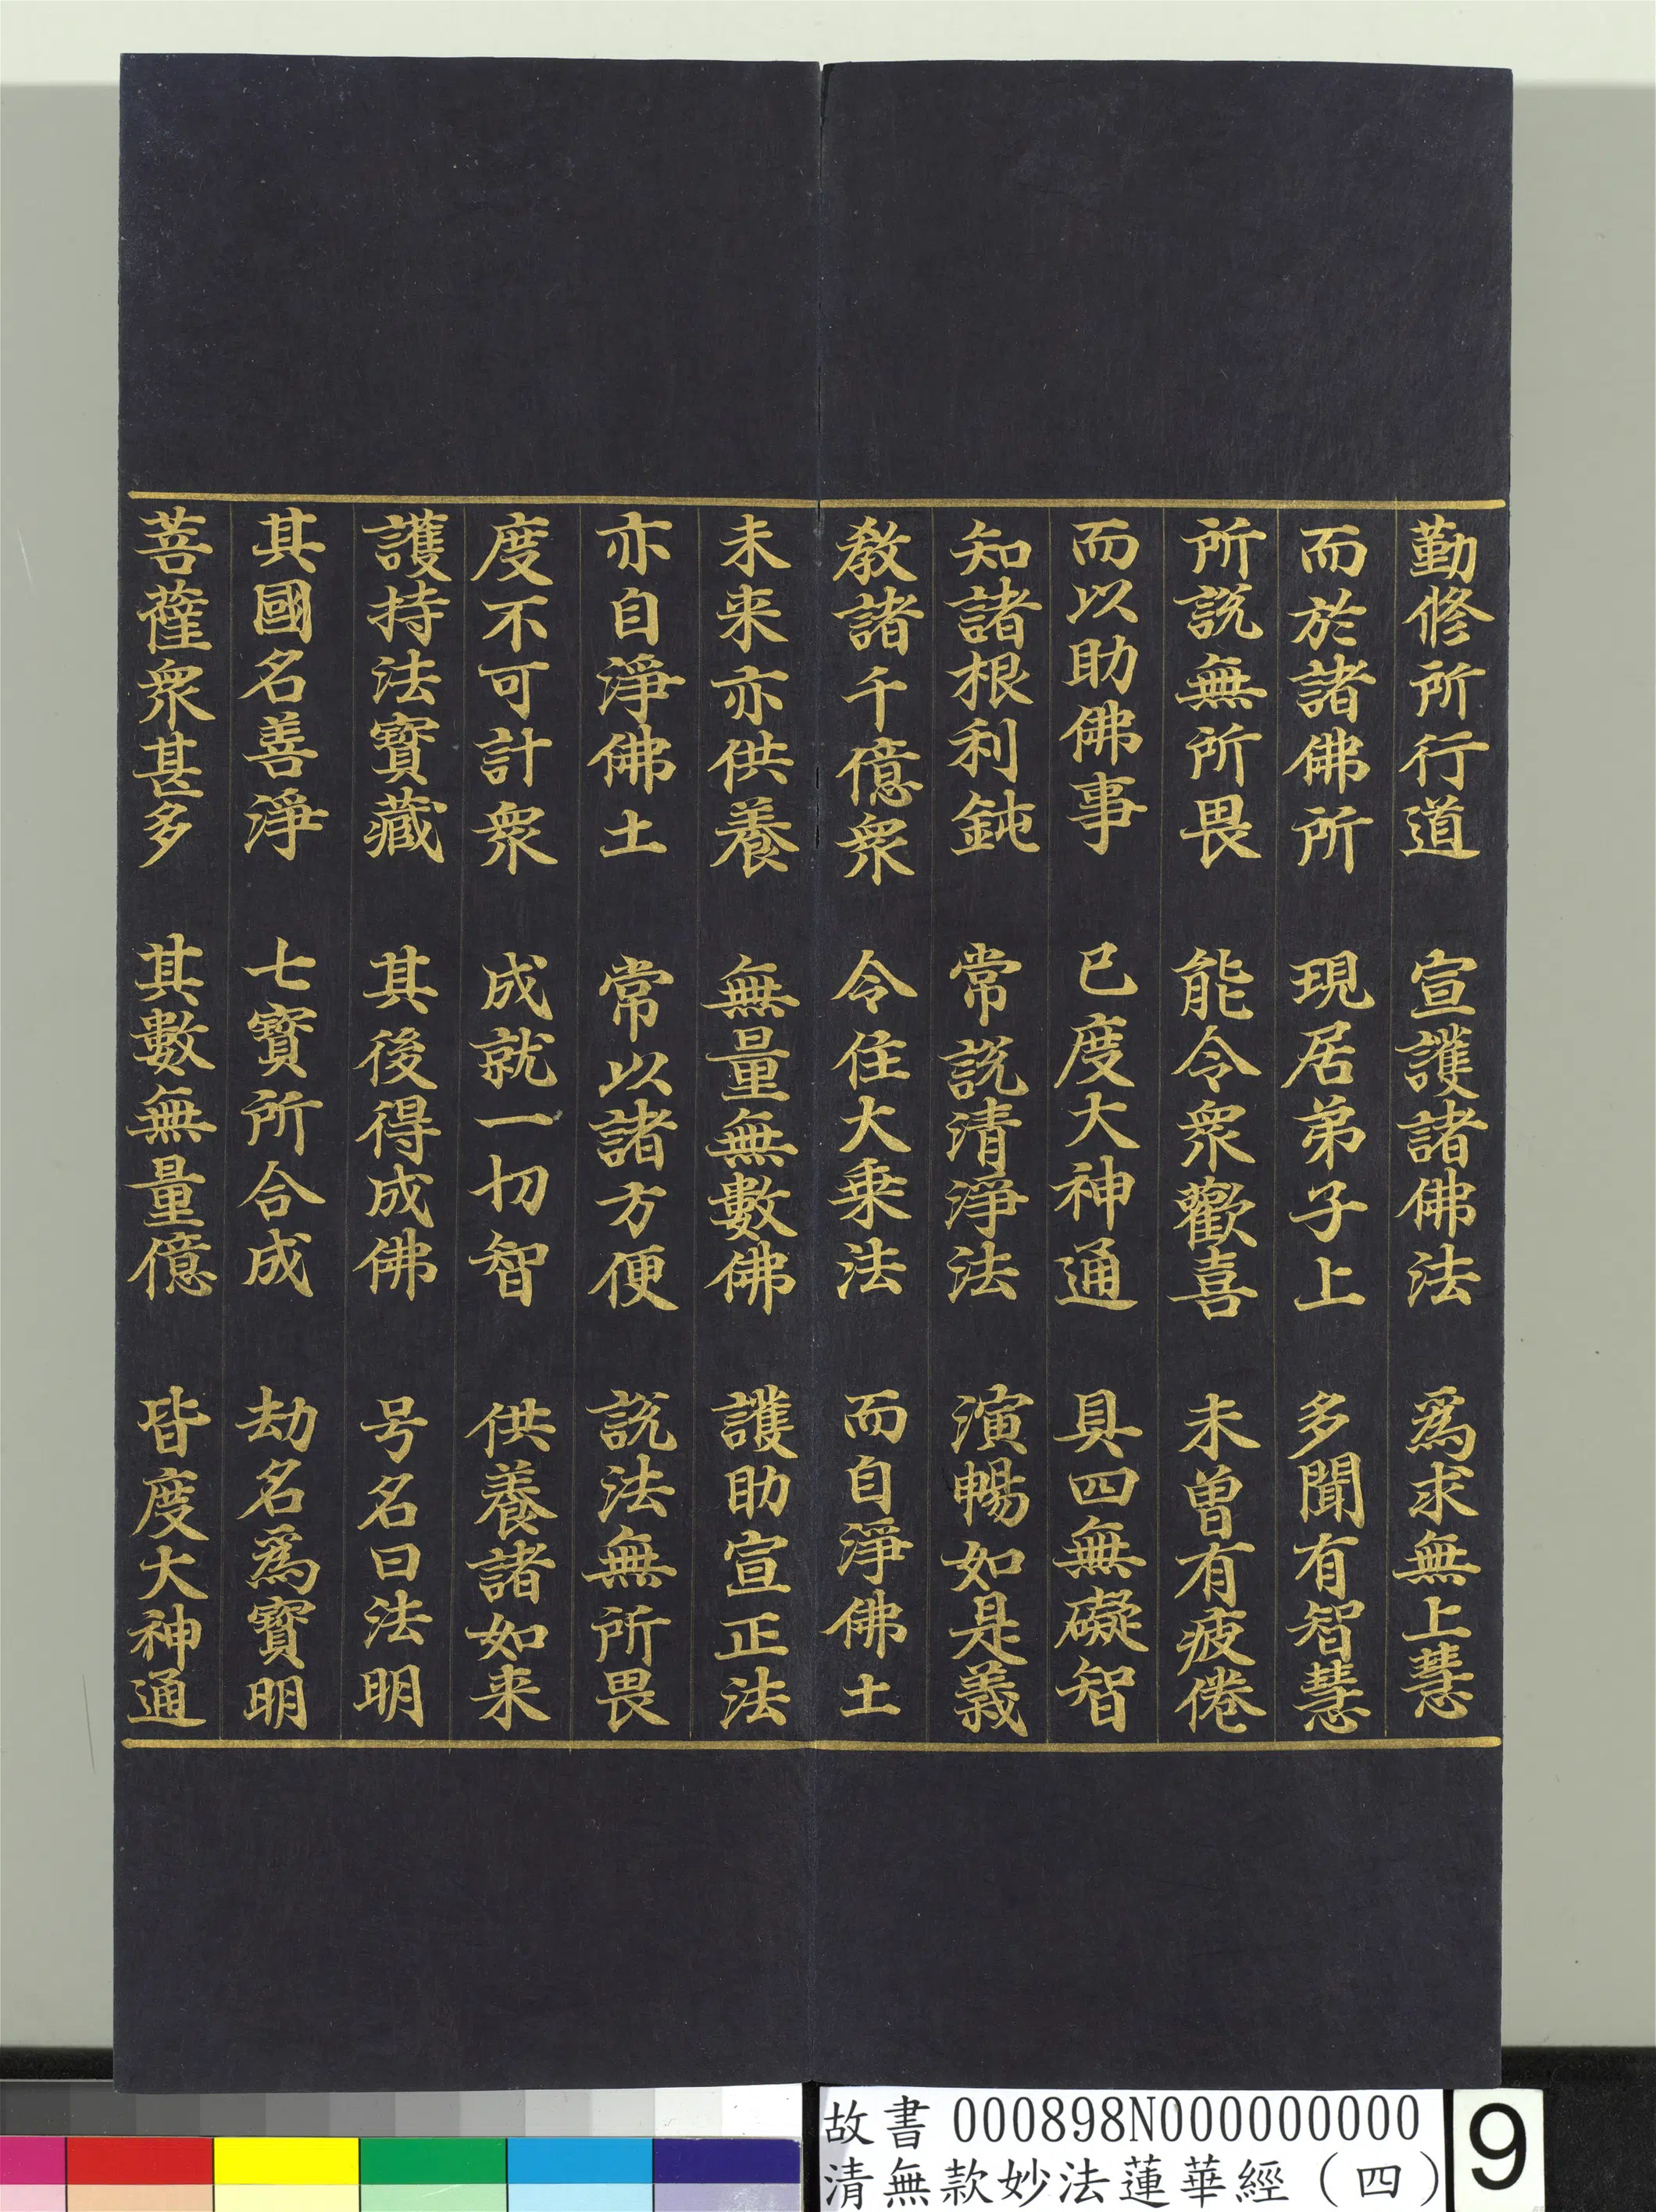 勤修所行道　宣護諸佛法　爲求無上慧
而於諸佛所　現居弟子上　多聞有智慧
所說無所畏　能令衆歡喜　未曾有疲倦
而以助佛事　已度大神通　具四無礙智
知諸根利鈍　常說清淨法　演暢如是義
教諸千億衆　令住大乗法　而自淨佛土
未来亦供養　無量無數佛　護助宣正法
亦自淨佛土　常以諸方便　說法無所畏
度不可計衆　成就一切智　供養諸如来
護持法寶藏　其後得成佛　号名曰法明
其國名善淨　七寶所合成　劫名爲寶明
菩薩衆甚多　其數無量億　皆度大神通
故書 000898N000000000
清無款妙法蓮華經（四）
9